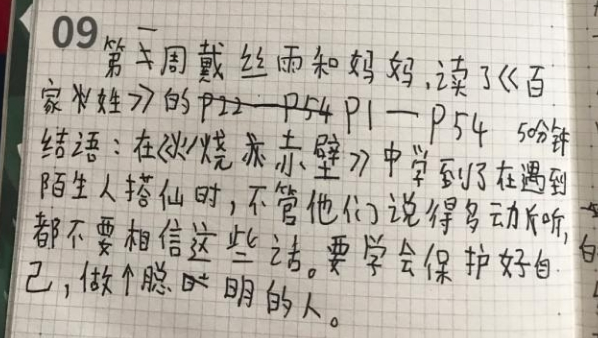 09
第一周戴丝雨和妈妈,读了《百
家姓》的P22—P54 P1—P54 50分钟
结语:在《火烧赤壁》中学到了在遇到
陌生人搭仙时,不管他们说得多动听,
都不要相信这些话。要学会保护好自
己,做个聪明的人。